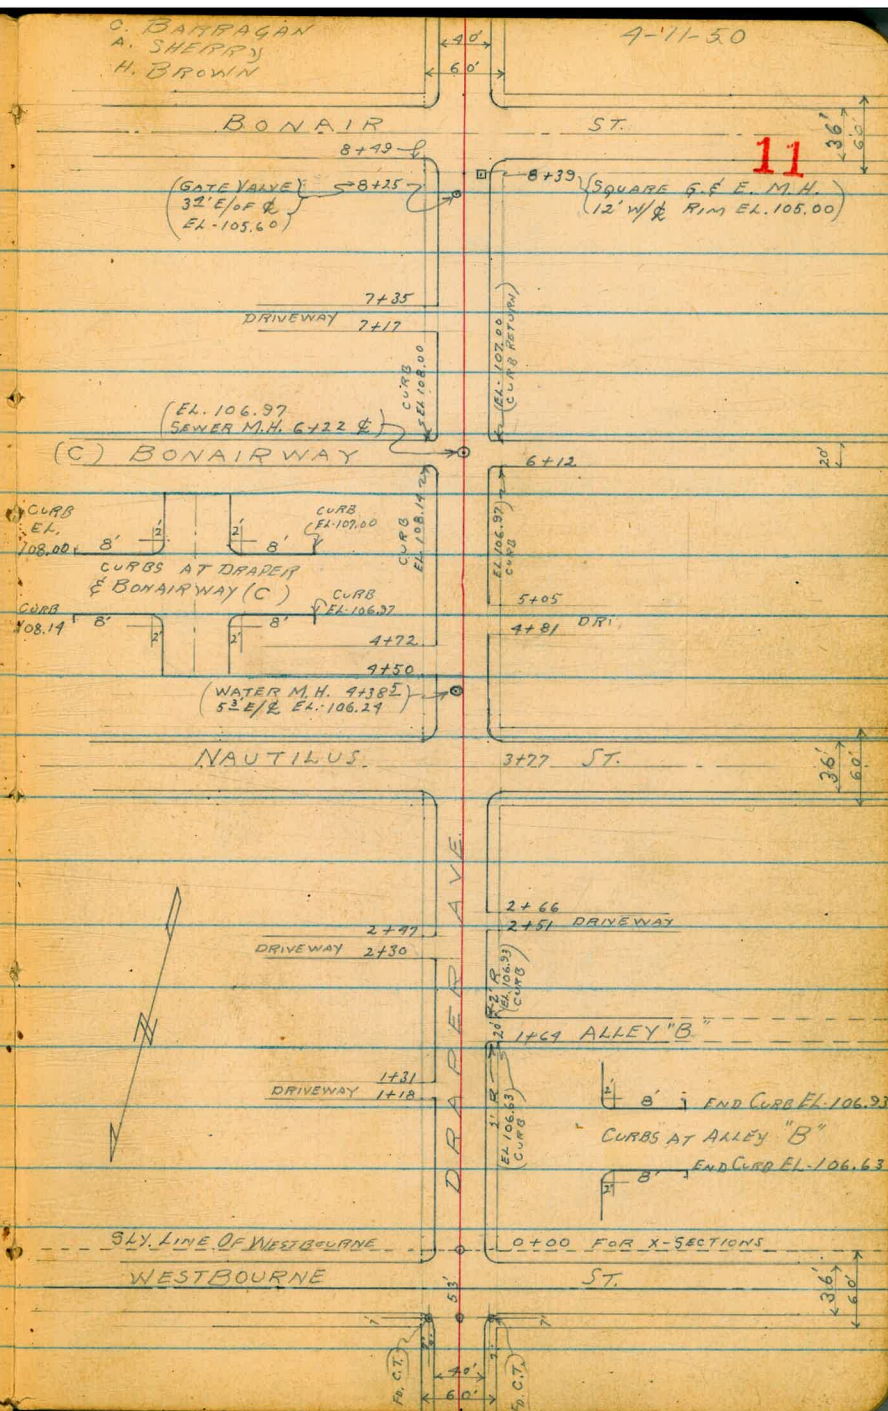 C. BARRAGAN
A. SHERRY
H. BROWN
4-11-50
40'
60'
BONAIR ST.
36'
60'
11
8+49
(GATE VALVE
3²' E/OF ℄
EL-105.60)
8+25
8+39
(SQUARE G.& E. M.H.
12' W/℄ RIM EL.105.00)
7+35
DRIVEWAY
7+17
CURB
EL 108.00
(EL-107.00
CURB RETURN)
(EL. 106.97
SEWER M.H. 6+22 ℄)
(C) BONAIRWAY
6+12
20'
CURB
EL.
108.00
8'
2'
2'
8'
CURB
EL-107.00
CURB
EL 108.14
EL 106.97
CURB
CURBS AT DRAPER
& BONAIRWAY (C)
CURB
108.14
8'
2'
2'
8'
CURB
EL-106.97
5+05
DRI.
4+81
4+72
4+50
(WATER M.H. 4+38⁵
5³' E/℄ EL-106.24)
NAUTILUS ST.
3+77
36'
60'
DRAPER AVE.
2+66
2+51 DRIVEWAY
2+47
DRIVEWAY 2+30
2' R
(EL 106.93
CURB)
20'
N
1+64 ALLEY "B"
1+31
DRIVEWAY 1+18
2' R
(EL 106.63
CURB)
2'
8'
END CURB EL-106.93
CURBS AT ALLEY "B"
2'
8'
END CURB EL-106.63
SLY. LINE OF WESTBOURNE
0+00 FOR X-SECTIONS
WESTBOURNE ST.
53'
36'
60'
7'
7'
FD. C.T.
40'
60'
FD. C.T.